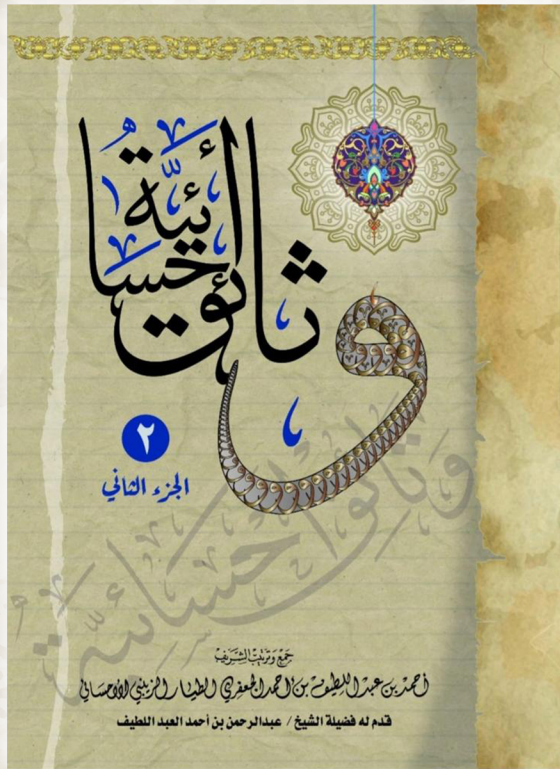 وثائق أحسائية
٢
الجزء الثاني
وثائق أحسائية
جمع وترتيب الشريف
أحمد بن عبد اللطيف بن أحمد الجعفري الطيار الزينبي الأحسائي
قدم له فضيلة الشيخ / عبدالرحمن بن أحمد العبد اللطيف